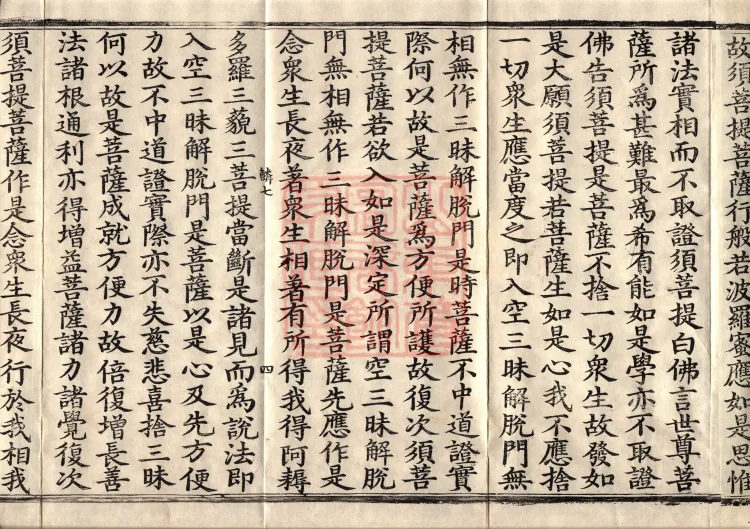 故須菩提菩薩行般若波羅蜜應如是思惟
諸法實相而不取證須菩提白佛言世尊菩
薩所爲甚難最爲希有能如是學亦不取證
佛告須菩提是菩薩不捨一切衆生故發如
是大願須菩提若菩薩生如是心我不應捨
一切衆生應當度之即入空三昧解脫門無
相無作三昧解脫門是時菩薩不中道證實
際何以故是菩薩爲方便所護故復次須菩
提菩薩若欲入如是深定所謂空三昧解脫
門無相無作三昧解脫門是菩薩先應作是
念衆生長夜著衆生相著有所得我得阿耨
麟七 四
多羅三藐三菩提當斷是諸見而爲說法即
入空三昧解脫門是菩薩以是心及先方便
力故不中道證實際亦不失慈悲喜捨三昧
何以故是菩薩成就方便力故倍復增長善
法諸根通利亦得增益菩薩諸力諸覺復次
須菩提菩薩作是念衆生長夜行於我相我